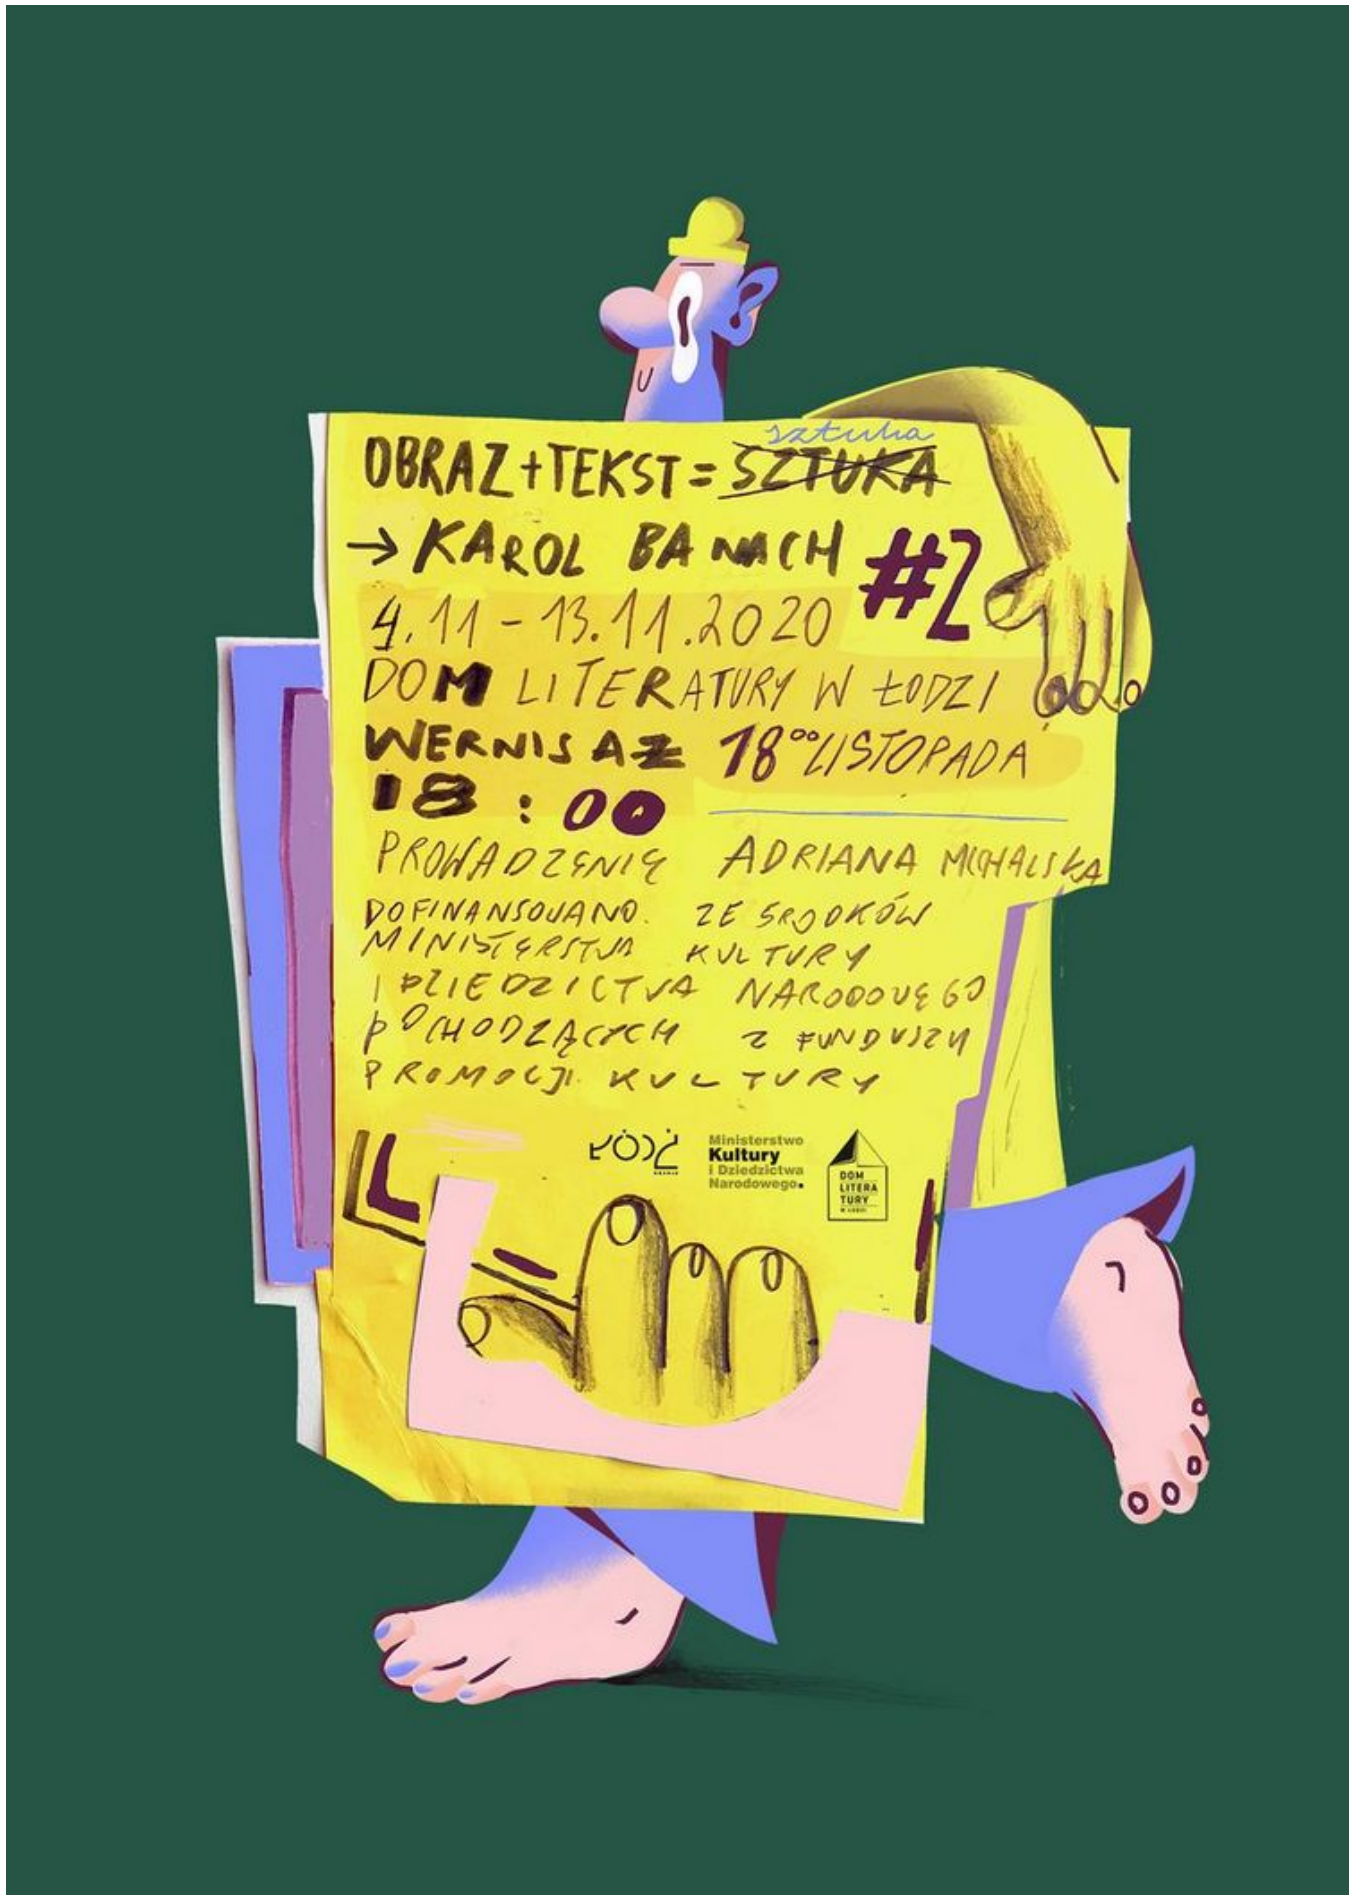 sztuka
OBRAZ + TEKST = SZTUKA
→ KAROL BANACH #2
4.11 - 13.11.2020
DOM LITERATURY W ŁODZI
WERNISAŻ 18⁰⁰ LISTOPADA
18:00
PROWADZENIE ADRIANA MICHALSKA
DOFINANSOWANO. ZE ŚRODKÓW
MINISTERSTWA KULTURY
I DZIEDZICTWA NARODOWEGO
POCHODZĄCYCH Z FUNDUSZY
PROMOCJI KULTURY
ŁÓDŹ
Ministerstwo
Kultury
i Dziedzictwa
Narodowego.
DOM
LITERA
TURY
W ŁODZI